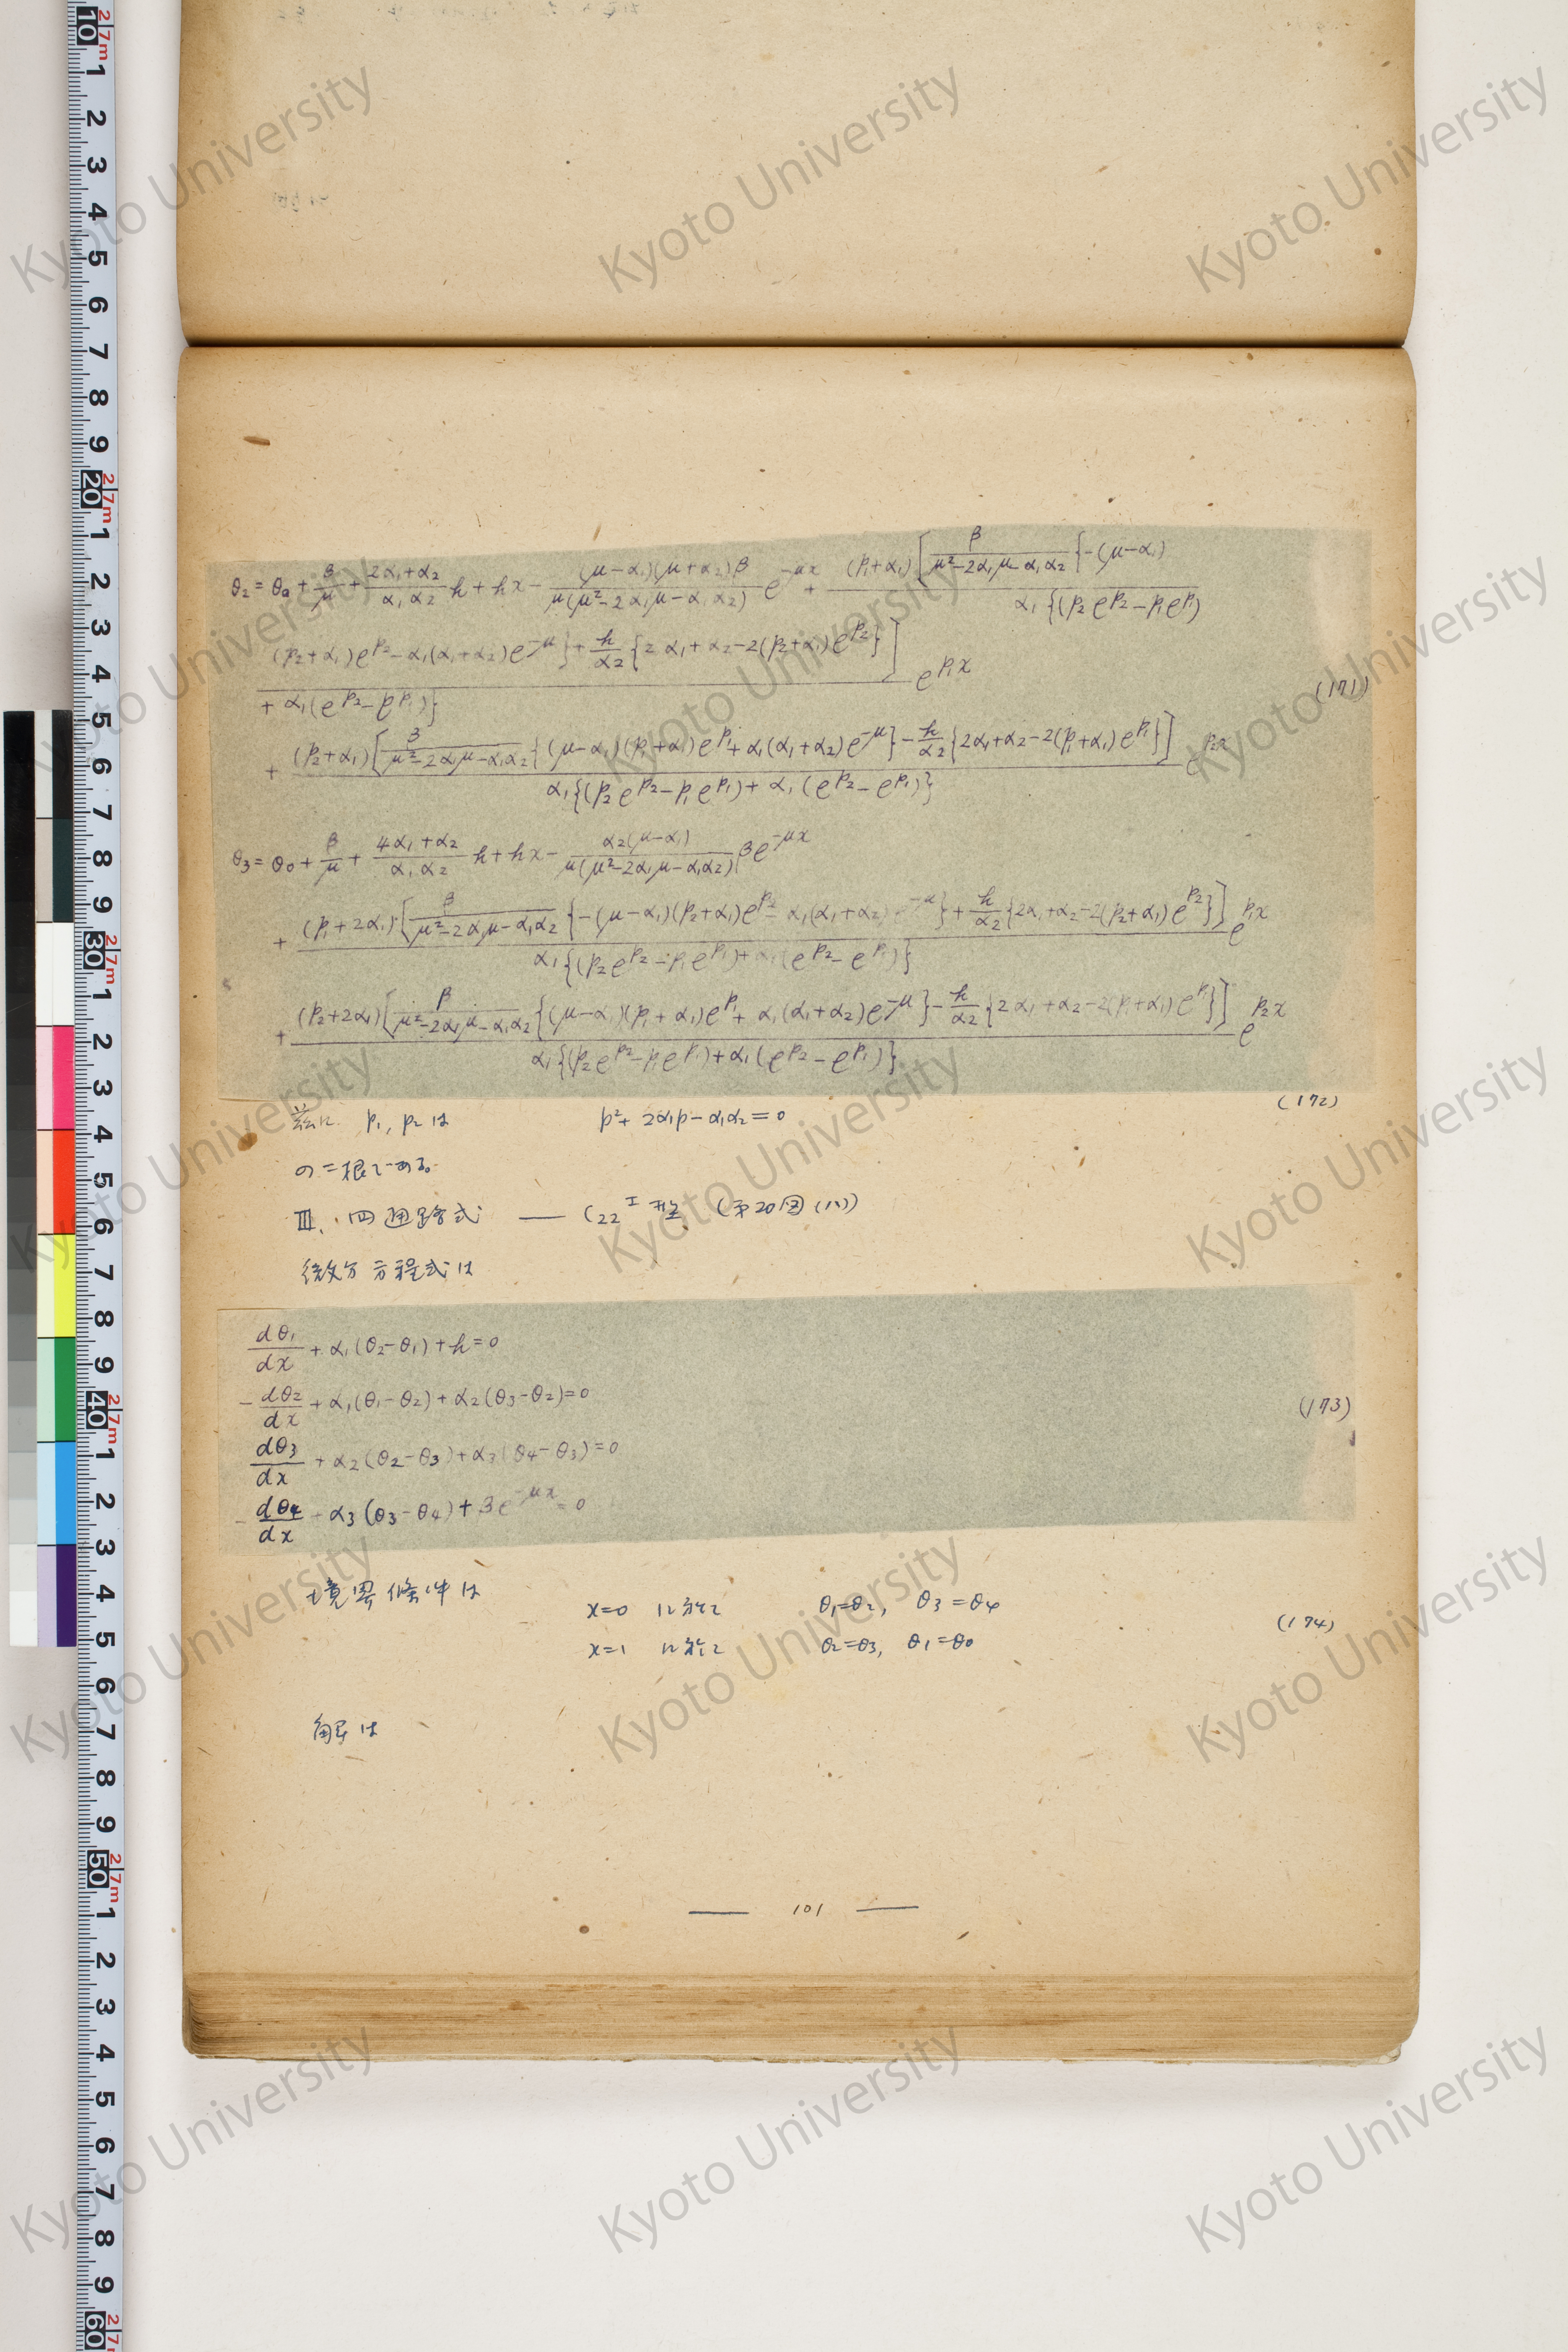 θ₂ = θ₀ + β/μ + (2α₁+α₂)/(α₁α₂) h + hx − (μ−α₁)(μ+α₂)β/(μ(μ²−2α₁μ−α₁α₂)) e^{−μx} + (p₁+α₁)[β/(μ²−2α₁μ−α₁α₂){−(μ−α₁)
(p₂+α₁)e^{p₂}−α₁(α₁+α₂)e^{−μ}}+h/α₂{2α₁+α₂−2(p₂+α₁)e^{p₂}}] / α₁{(p₂e^{p₂}−p₁e^{p₁})+α₁(e^{p₂}−e^{p₁})} e^{p₁x}
(171)
+ (p₂+α₁)[β/(μ²−2α₁μ−α₁α₂){(μ−α₁)(p₁+α₁)e^{p₁}+α₁(α₁+α₂)e^{−μ}}−h/α₂{2α₁+α₂−2(p₁+α₁)e^{p₁}}] / α₁{(p₂e^{p₂}−p₁e^{p₁})+α₁(e^{p₂}−e^{p₁})} e^{p₂x}
θ₃ = θ₀ + β/μ + (4α₁+α₂)/(α₁α₂) h + hx − α₂(μ−α₁)/(μ(μ²−2α₁μ−α₁α₂)) βe^{−μx}
+ (p₁+2α₁)[β/(μ²−2α₁μ−α₁α₂){−(μ−α₁)(p₂+α₁)e^{p₂}−α₁(α₁+α₂)e^{−μ}}+h/α₂{2α₁+α₂−2(p₂+α₁)e^{p₂}}] / α₁{(p₂e^{p₂}−p₁e^{p₁})+α₁(e^{p₂}−e^{p₁})} e^{p₁x}
+ (p₂+2α₁)[β/(μ²−2α₁μ−α₁α₂){(μ−α₁)(p₁+α₁)e^{p₁}+α₁(α₁+α₂)e^{−μ}}−h/α₂{2α₁+α₂−2(p₁+α₁)e^{p₁}}] / α₁{(p₂e^{p₂}−p₁e^{p₁})+α₁(e^{p₂}−e^{p₁})} e^{p₂x}
茲に p₁, p₂ は p²+2α₁p−α₁α₂=0 (172)
の二根である。
Ⅲ. 四通路式 —— C₂₂ᴵ 型 (第20図(ハ))
微分方程式は
dθ₁/dx + α₁(θ₂−θ₁)+h=0
−dθ₂/dx + α₁(θ₁−θ₂)+α₂(θ₃−θ₂)=0 (173)
dθ₃/dx + α₂(θ₂−θ₃)+α₃(θ₄−θ₃)=0
−dθ₄/dx + α₃(θ₃−θ₄)+βe^{−μx}=0
境界條件は
x=0 に於て θ₁=θ₂, θ₃=θ₄ (174)
x=1 に於て θ₂=θ₃, θ₁=θ₀
解は
— 101 —
Kyoto University